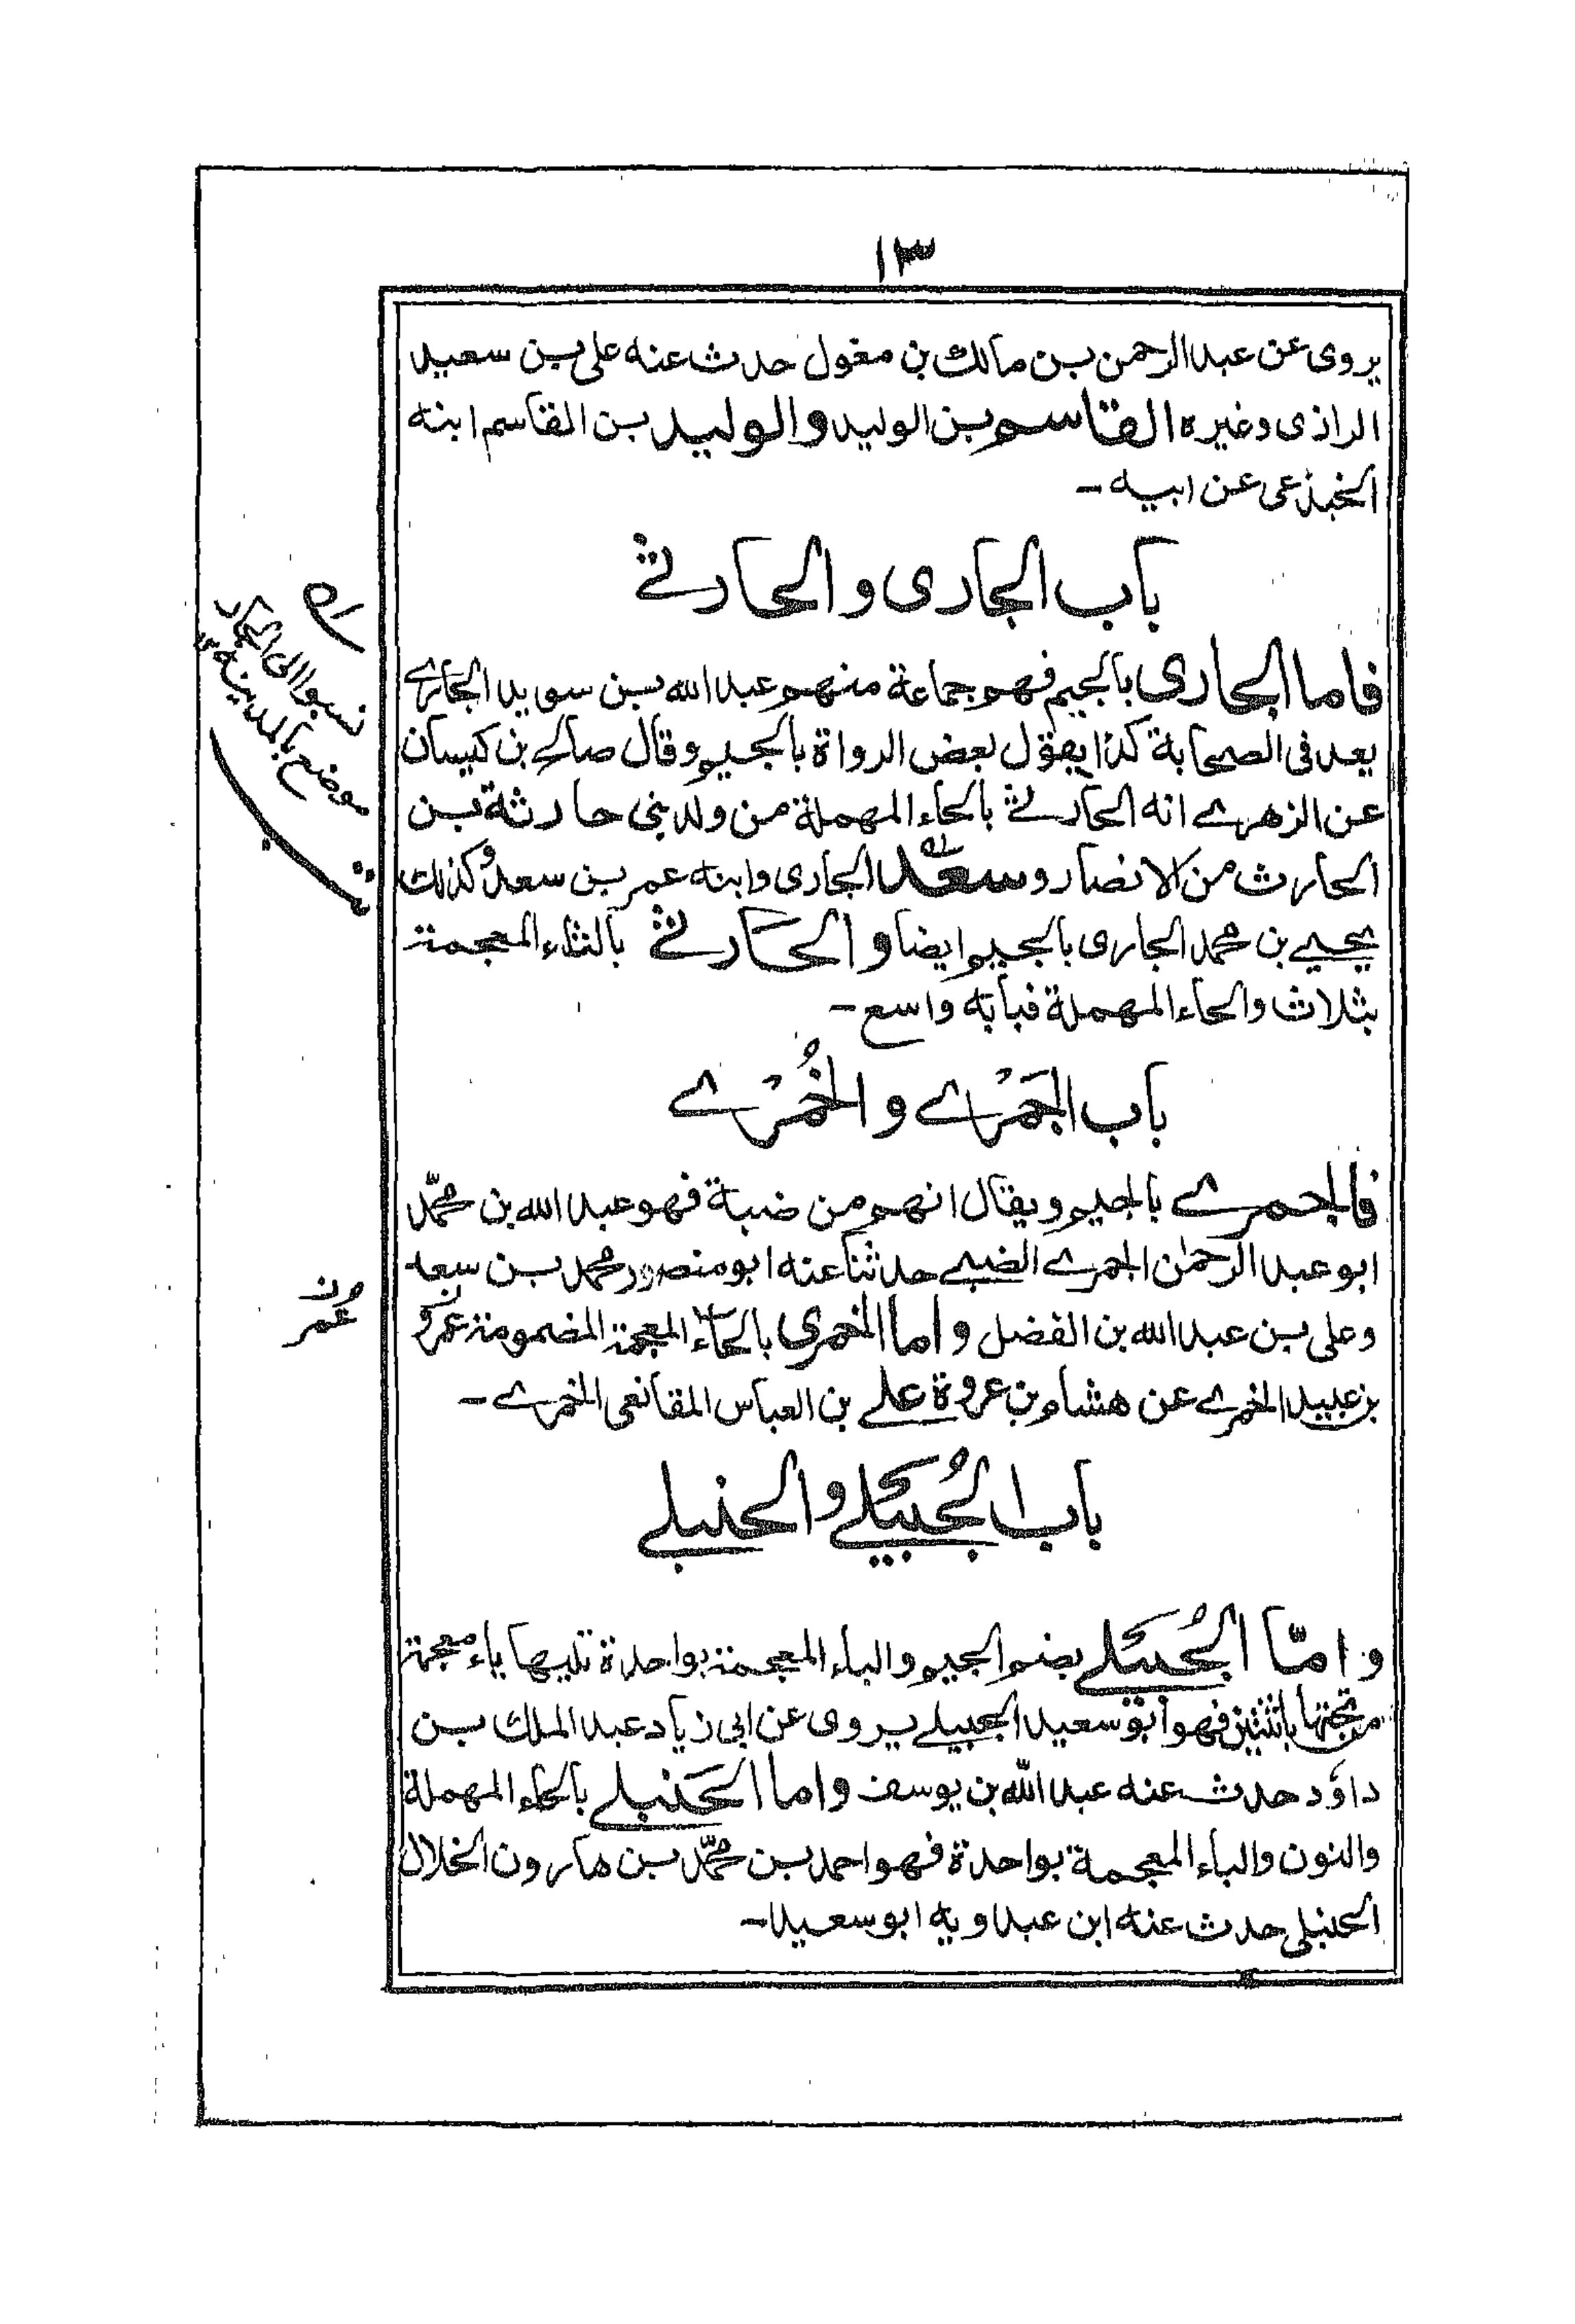 ١٣
يروى عن عبد الرحمن بن مالك بن مغول حدث عنه على بن سعيد
الرازى وغيره القاسم بن الوليد والوليد بن القاسم ابنه
الخبذعى عن ابيه -
باب الجارى والحارثے
فاما الجارى بالجيم فهم جماعة منهم عبد الله بن سويد الجارے
يعد فى الصحابة كذا يقول بعض الرواة بالجيم وقال صالح بن كيسان
عن الزهرے انه الحارثے بالحاء المهملة من ولد بنى حارثة بن
الحارث من الانصار وسعد الجارى وابنه عمر بن سعد وكذلك
يحيے بن محمد الجارى بالجيم ايضا والحارثے بالثاء المعجمة
بثلاث والحاء المهملة فبابه واسع -
نسبوا الى الجار
موضع بالمدينة
باب الجَمْرے والخُمْرے
فالجمرے بالجيم ويقال انهم من ضبة فهو عبد الله بن محمّد
ابو عبد الرحمٰن الجمرے الضبے حدثنا عنه ابو منصور محمد بن سعد
وعلى بن عبد الله بن الفضل واما الخمرى بالخاء المعجمة المضمومة عمرو
عمر
بن عبيد الخمرے عن هشام بن عروة علے بن العباس المقانعى الخمرے -
باب الجُبيلے والحنبلے
وامّا الجُبيلے بضم الجيم والباء المعجمة بواحدة تليها ياء معجمة
من تحتها باثنتين فهو ابو سعيد الجبيلے يروى عن ابى زياد عبد الملك بن
داؤد حدث عنه عبد الله بن يوسف واما الحَنبلے بالحاء المهملة
والنون والباء المعجمة بواحدة فهو احمد بن محمّد بن هارون الخلال
الحنبلى حدث عنه ابن عبداويه ابو سعيد -